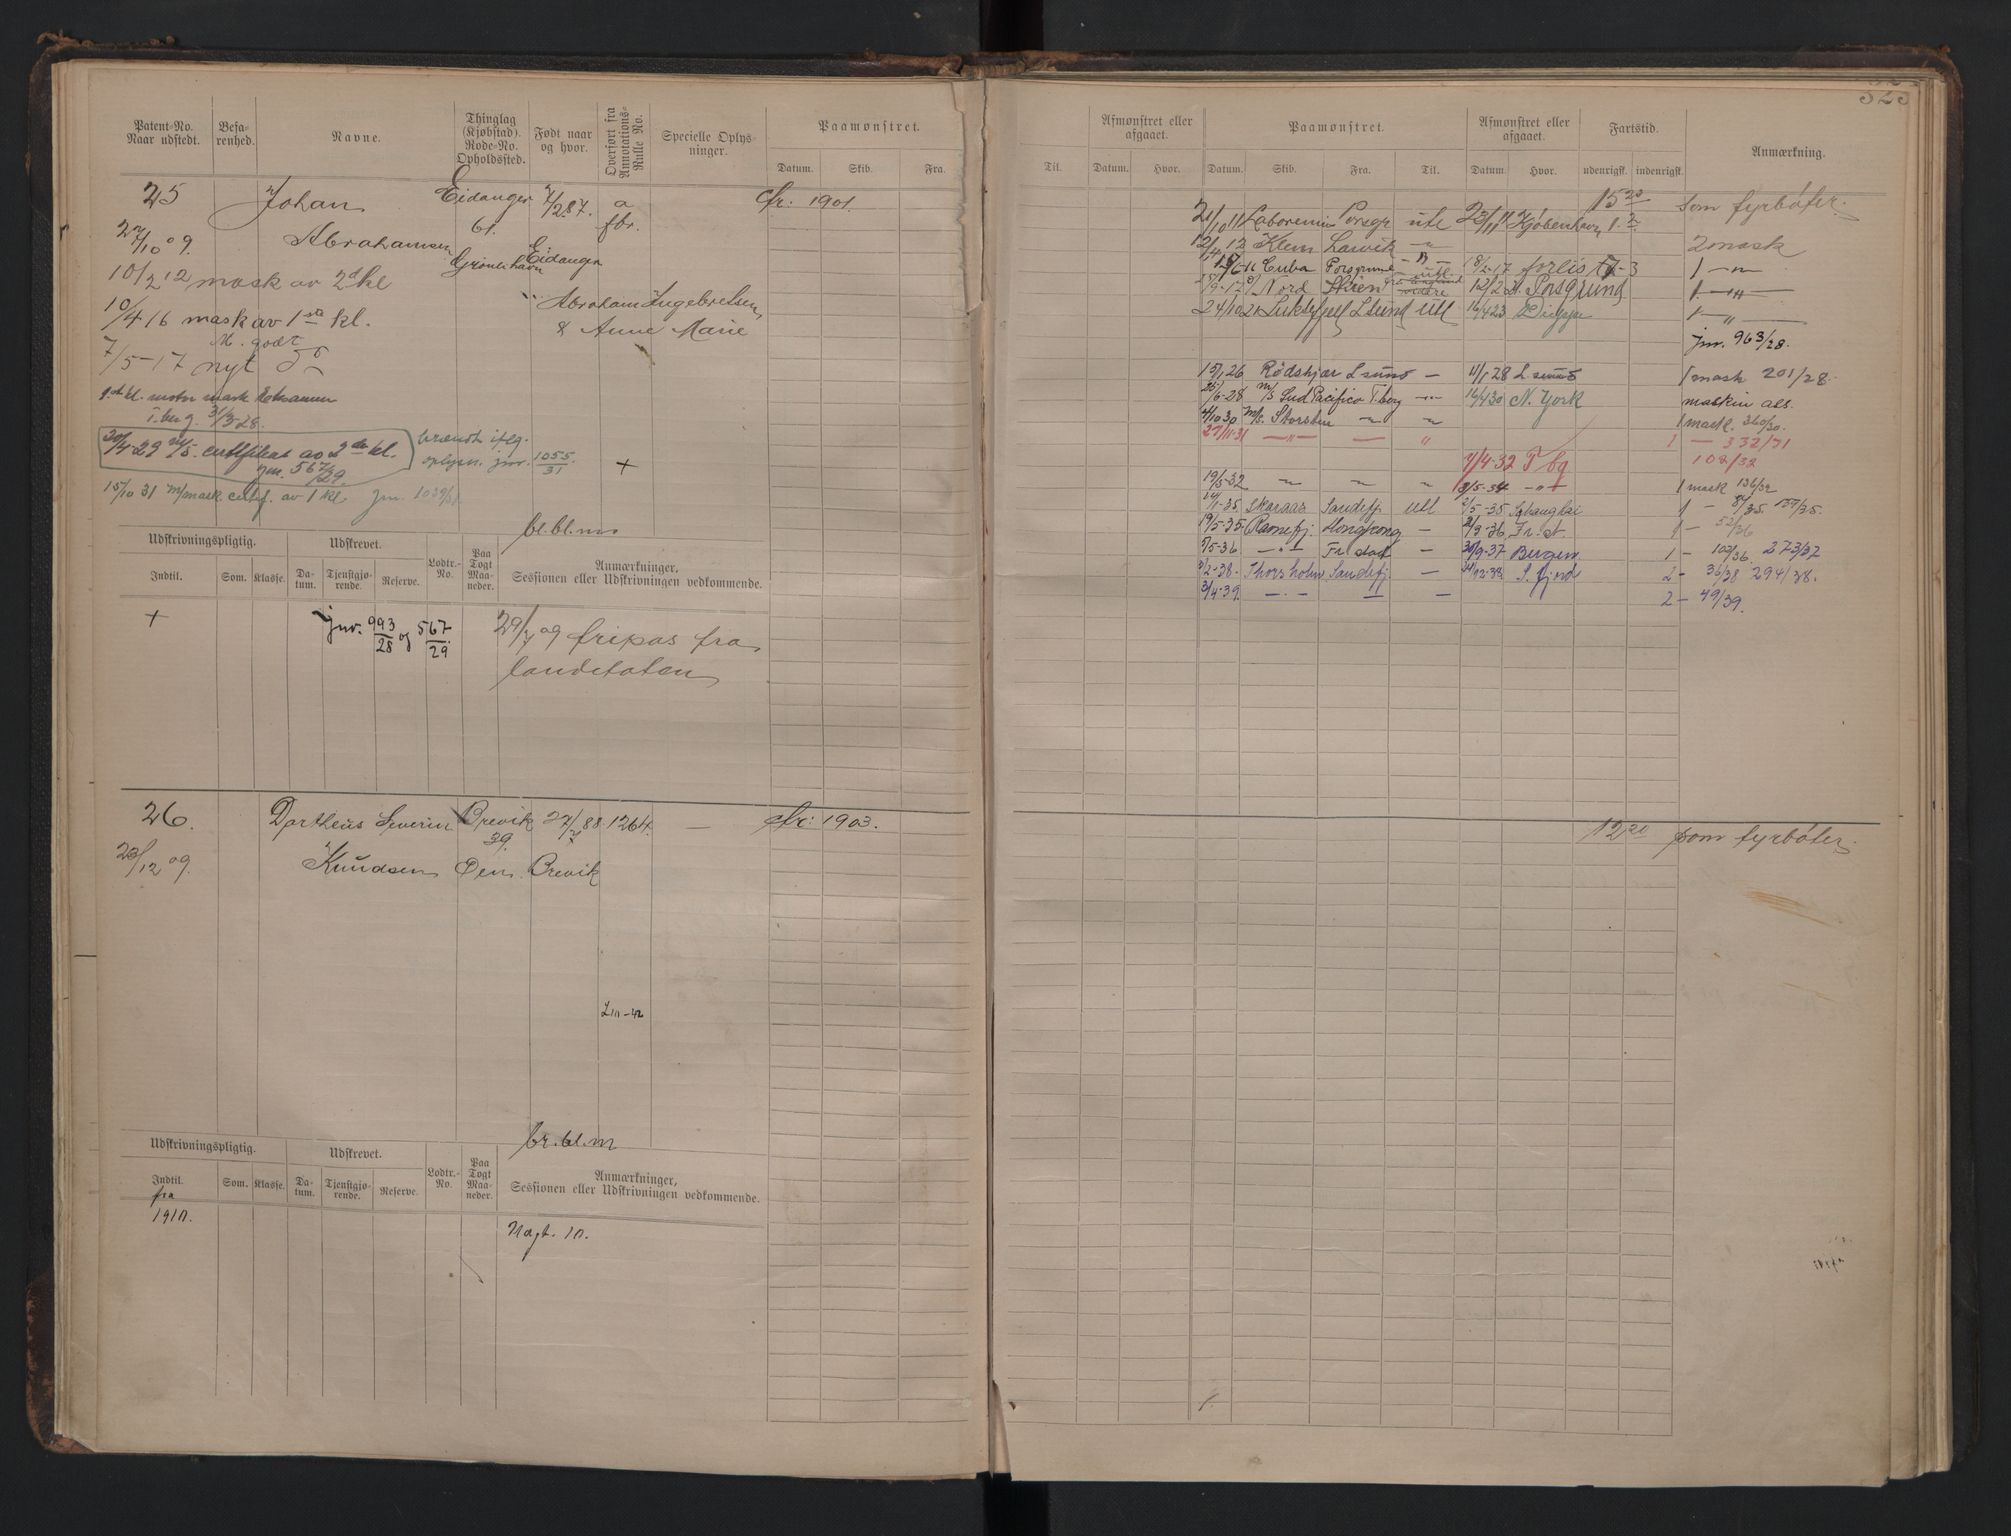 Patent-No. Naar udstedt.
Befarenhed.
Navne.
Thinglag (Kjøbstad). Rode-No. Opholdssted.
Født naar og hvor.
Overført fra Annotations-Rulle No.
Specielle Oplysninger.
Paamønstret.
Datum. Skib. Fra.
25 Johan Eidanger 7/2 87. a cfr: 1901.
61. fbr.
27/10 09. Abrahamsen Eidanger
10/2 12 mask av 2d kl
Abraham Ingebretsen
10/4 16 mask av 1ste kl. & Anne Marie
7/5-17 nyt
1.st kl. motor mask
T.berg. 31/3-28.
30/4-29 certifikat av 2den kl.
jnr. 567/29.
brændt iflg. oplysn. jnr. 1055/31 +
15/10 31 m/mask certif. av 1 kl.
bl.bl.m.
Udskrivningspligtig. Udskrevet. Lodtr.-No. Paa Togt Maaneder. Anmærkninger, Sessionen eller Udskrivningen vedkommende.
Indtil. Som. Klasse. Datum. Tjenstgjørende. Reserve.
+ jnr. 993/28 og 567/29 29/7 09 fripas fra
landetaten
26. Dortheus Severin Brevik 27/7 88 1264. — cfr: 1903.
39.
23/12 09. Knudsen Øen. Brevik
br.bl.m
Udskrivningspligtig. Udskrevet. Lodtr.-No. Paa Togt Maaneder. Anmærkninger, Sessionen eller Udskrivningen vedkommende.
Indtil. Som. Klasse. Datum. Tjenstgjørende. Reserve.
fra
1910.
Nægt. 10.
Til.
Afmønstret eller afgaaet.
Datum. Hvor.
Paamønstret.
Datum. Skib. Fra. Til.
Afmønstret eller afgaaet.
Datum. Hvor.
Fartstid.
udenrigsk. indenrigsk.
Anmærkning.
15 20 som fyrbøter.
21/10 11 Laboremus Porsgr ute 23/11 11 Kjøbenhavn
12/4 12 Klem Larvik 2 mask
Cuba Porsgrund 18/2-17 forlist 1
Nord Skien Porsgrund 1
24/10 21 Luksefjell L sund utl 16/4 23 Dieppe 1
jnr. 963/28.
15/1 26 Rødskjær L sund - 11/1 28 L sund 1 mask 201/28.
25/6-28 m/s Sud Pacifico T.berg 16/4 30 N. York maskin ass.
4/10 30 m/s. Storsten 1 mask. 360/30.
27/11-31 1 - 332/31
7/4-32 T bg 108/32
19/5-32 1 mask 136/32
Skaraas Sandefj. utl 2/5-35 Schanghai 1 -
19/5-35 Ravnefj. Hongkong - 2/3-36 Fr.st. 1 - 52/36
5/5-36 Fr. stad - 30/9-37 Bergen 1 - 102/36. 273/37
3/2-38. Thorsholm Sandefj. - S. fjord 2 - 36/38 294/38.
3/4-39. 2 - 49/39.
12 20 som fyrbøter.